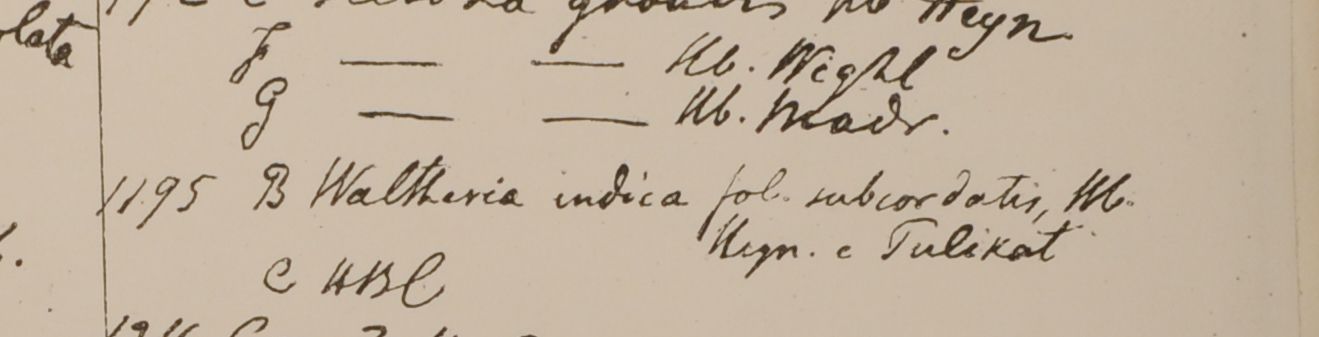 lata
Hb Heyn
F — — Hb. Wight
G — — Hb. Madr.
1195 B Waltheria indica fol. subcordatis, Hb.
Heyn. e Tulikat
C HBC